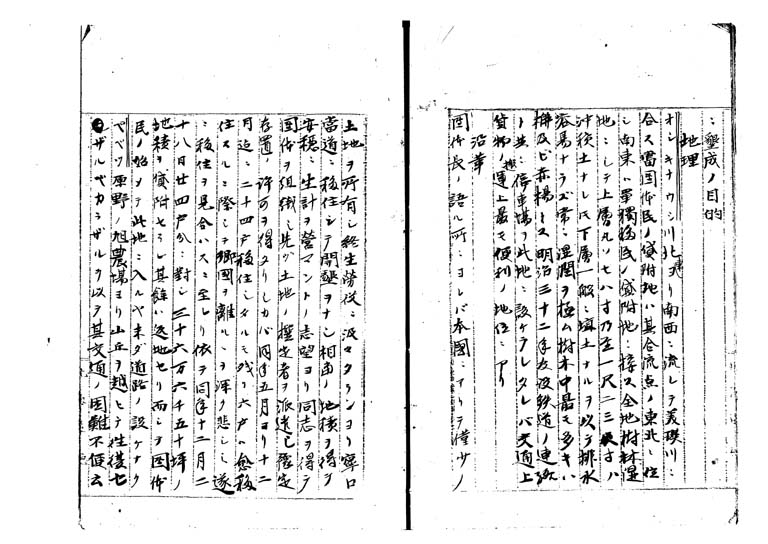 ニ墾成ノ目的
地理
オシキナウシ川北ヨリ南西ニ流レテ美瑛川ニ
合ス當団体民ノ貸附地ハ其合流点ノ東北ニ位
シ南東ハ單獨移民ノ貸附地ニ接ス全地樹林湿
地ニシテ上層凡ソ七八寸乃至一尺二三寸ハ
沖積土ナレ氏下層一般ニ埴土ナルヲ以テ排水
容易ナラズ常ニ湿潤ヲ極ム樹木中最モ多キハ
及ビ赤楊トス明治三十二年友讀鉄道ノ連絡
ト共ニ停車場ヲ此地ニ設ケラレタレバ交通上
貨物ノ運上最モ便利ノ地位ニアリ
沿革
団体長ノ語ル所ニヨレバ本國ニアリテ僅少ノ
土地ヲ所有シ終生労役ニ汲々タランヨリ寧ロ
當道ニ移住シテ開墾ヲナシ相當ノ地積ヲ得テ
安穏ニ生計ヲ營マントノ志望ヨリ同志ヲ得テ
団体ヲ組織シ先ヅ土地ノ撰定者ヲ派遣シ豫定
存置ノ許可ヲ得タリシカバ同年五月ヨリ十二
月迄ニ二十四戸移住シタルモ残リ六戸ハ愈移
住スルニ際シテ郷國ヲ離ルヽヲ深ク悲シミ遂
ニ移住ヲ見合ハスニ至レリ依テ同年十二月二
十八日廿四戸分ニ對シ三十六万六千五十坪ノ
地積ヲ貸附セラレ其餘ハ返地セリ而シテ団体
民ノ始メテ此地ニ入ルヤ未ダ道路ノ設ケナク
ベベツ原野ノ旭農場ヨリ山丘ヲ越ヒテ往復セ
ザルベカラザルヲ以テ其交通ノ困難不便云